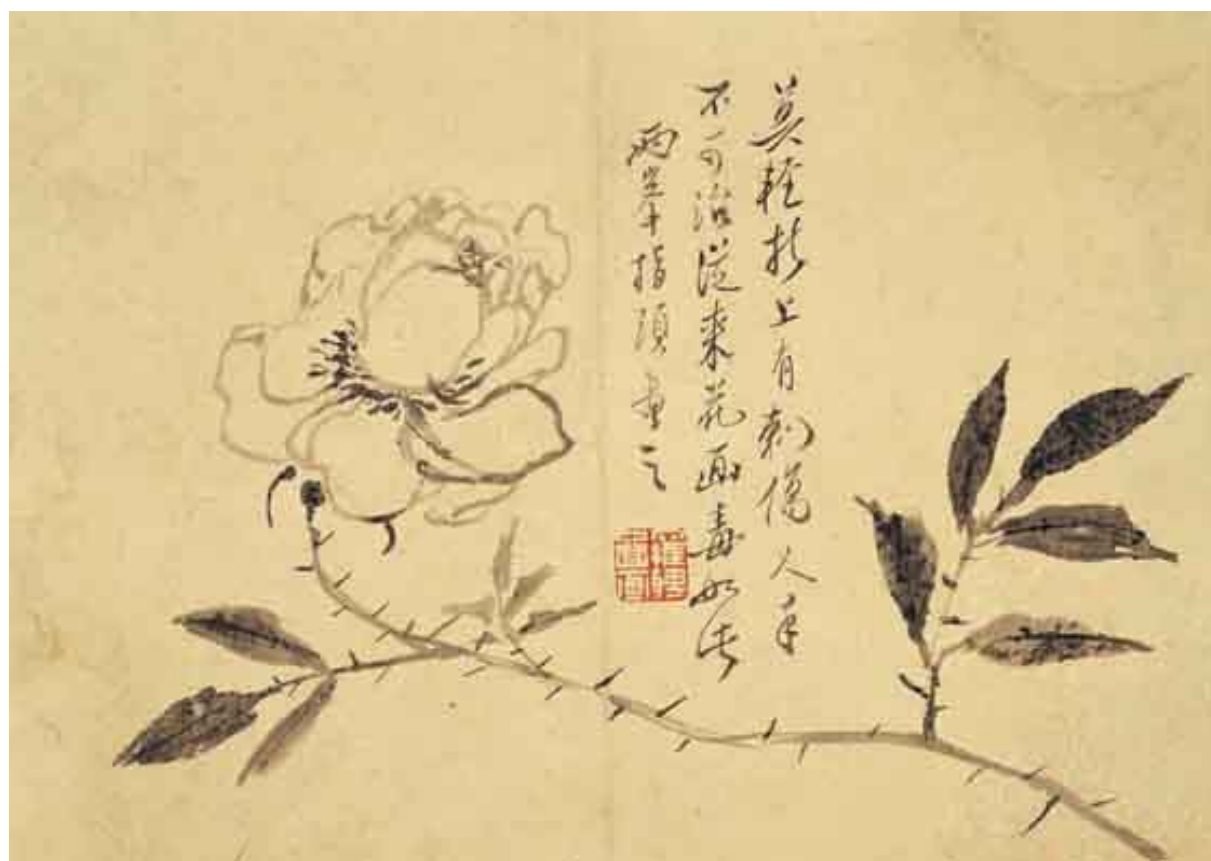 莫輕折上有刺傷人手
不可治從來花面毒如此
兩峯指頭畫之